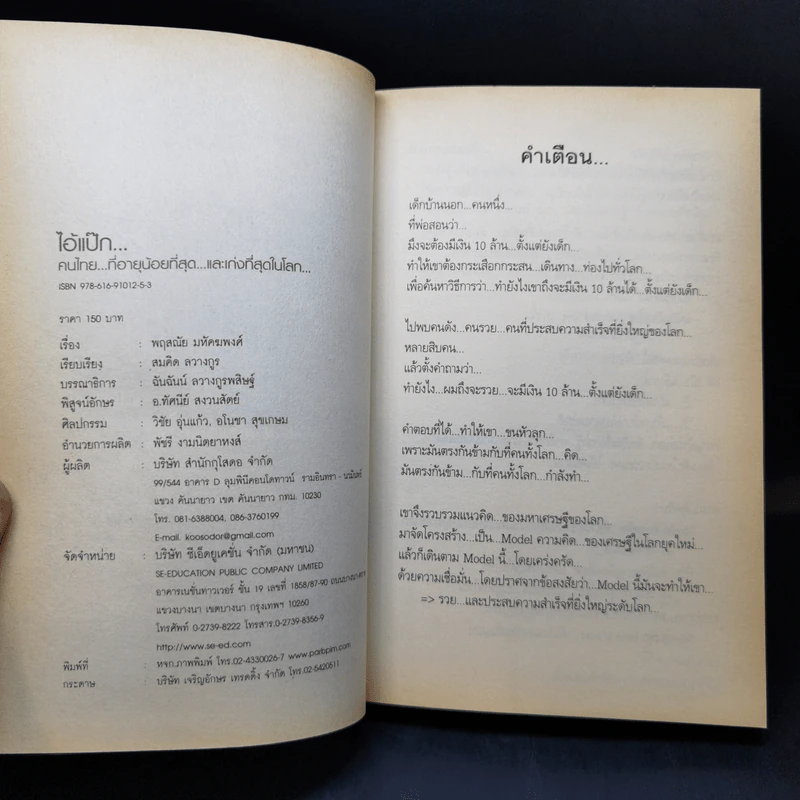 ไอ้แป๊ก...
คนไทย...ที่อายุน้อยที่สุด...และเก่งที่สุดในโลก...
ISBN 978-616-91012-5-3
ราคา 150 บาท
เรื่อง : พฤสณัย มหัคฆพงศ์
เรียบเรียง : สมคิด ลวางกูร
บรรณาธิการ : ฉันฉันน์ ลวางกูรพสิษฐ์
พิสูจน์อักษร : อ.ทัศนีย์ สงวนสัตย์
ศิลปกรรม : วิชัย อุ่นแก้ว, อโนชา สุขเกษม
อำนวยการผลิต : พัชรี งามนิตยาหงส์
ผู้ผลิต : บริษัท สำนักกูโสดอ จำกัด
99/544 อาคาร D ลุมพินีคอนโดทาวน์ รามอินทรา - นวมินทร์
แขวง คันนายาว เขต คันนายาว กทม. 10230
โทร. 081-6388004, 086-3760199
E-mail. koosodor@gmail.com
จัดจำหน่าย : บริษัท ซีเอ็ดยูเคชั่น จำกัด (มหาชน)
SE-EDUCATION PUBLIC COMPANY LIMITED
อาคารเนชั่นทาวเวอร์ ชั้น 19 เลขที่ 1858/87-90 ถนนบางนา-ตราด
แขวงบางนา เขตบางนา กรุงเทพฯ 10260
โทรศัพท์ 0-2739-8222 โทรสาร.0-2739-8356-9
http://www.se-ed.com
พิมพ์ที่ : หจก.ภาพพิมพ์ โทร.02-4330026-7 www.parbpim.com
กระดาษ : บริษัท เจริญอักษร เทรดดิ้ง จำกัด โทร.02-5420511
คำเตือน...
เด็กบ้านนอก...คนหนึ่ง...
ที่พ่อสอนว่า...
มึงจะต้องมีเงิน 10 ล้าน...ตั้งแต่ยังเด็ก...
ทำให้เขาต้องกระเสือกกระสน...เดินทาง...ท่องไปทั่วโลก...
เพื่อค้นหาวิธีการว่า...ทำยังไงเขาถึงจะมีเงิน 10 ล้านได้...ตั้งแต่ยังเด็ก...
ไปพบคนดัง...คนรวย...คนที่ประสบความสำเร็จที่ยิ่งใหญ่ของโลก...
หลายสิบคน...
แล้วตั้งคำถามว่า...
ทำยังไง...ผมถึงจะรวย...จะมีเงิน 10 ล้าน...ตั้งแต่ยังเด็ก...
คำตอบที่ได้...ทำให้เขา...ขนหัวลุก...
เพราะมันตรงกันข้ามกับที่คนทั้งโลก...คิด...
มันตรงกันข้าม...กับที่คนทั้งโลก...กำลังทำ...
เขาจึงรวบรวมแนวคิด...ของมหาเศรษฐีของโลก...
มาจัดโครงสร้าง...เป็น...Model ความคิด...ของเศรษฐีในโลกยุคใหม่...
แล้วก็เดินตาม Model นี้...โดยเคร่งครัด...
ด้วยความเชื่อมั่น...โดยปราศจากข้อสงสัยว่า...Model นี้มันจะทำให้เขา...
=> รวย...และประสบความสำเร็จที่ยิ่งใหญ่ระดับโลก...